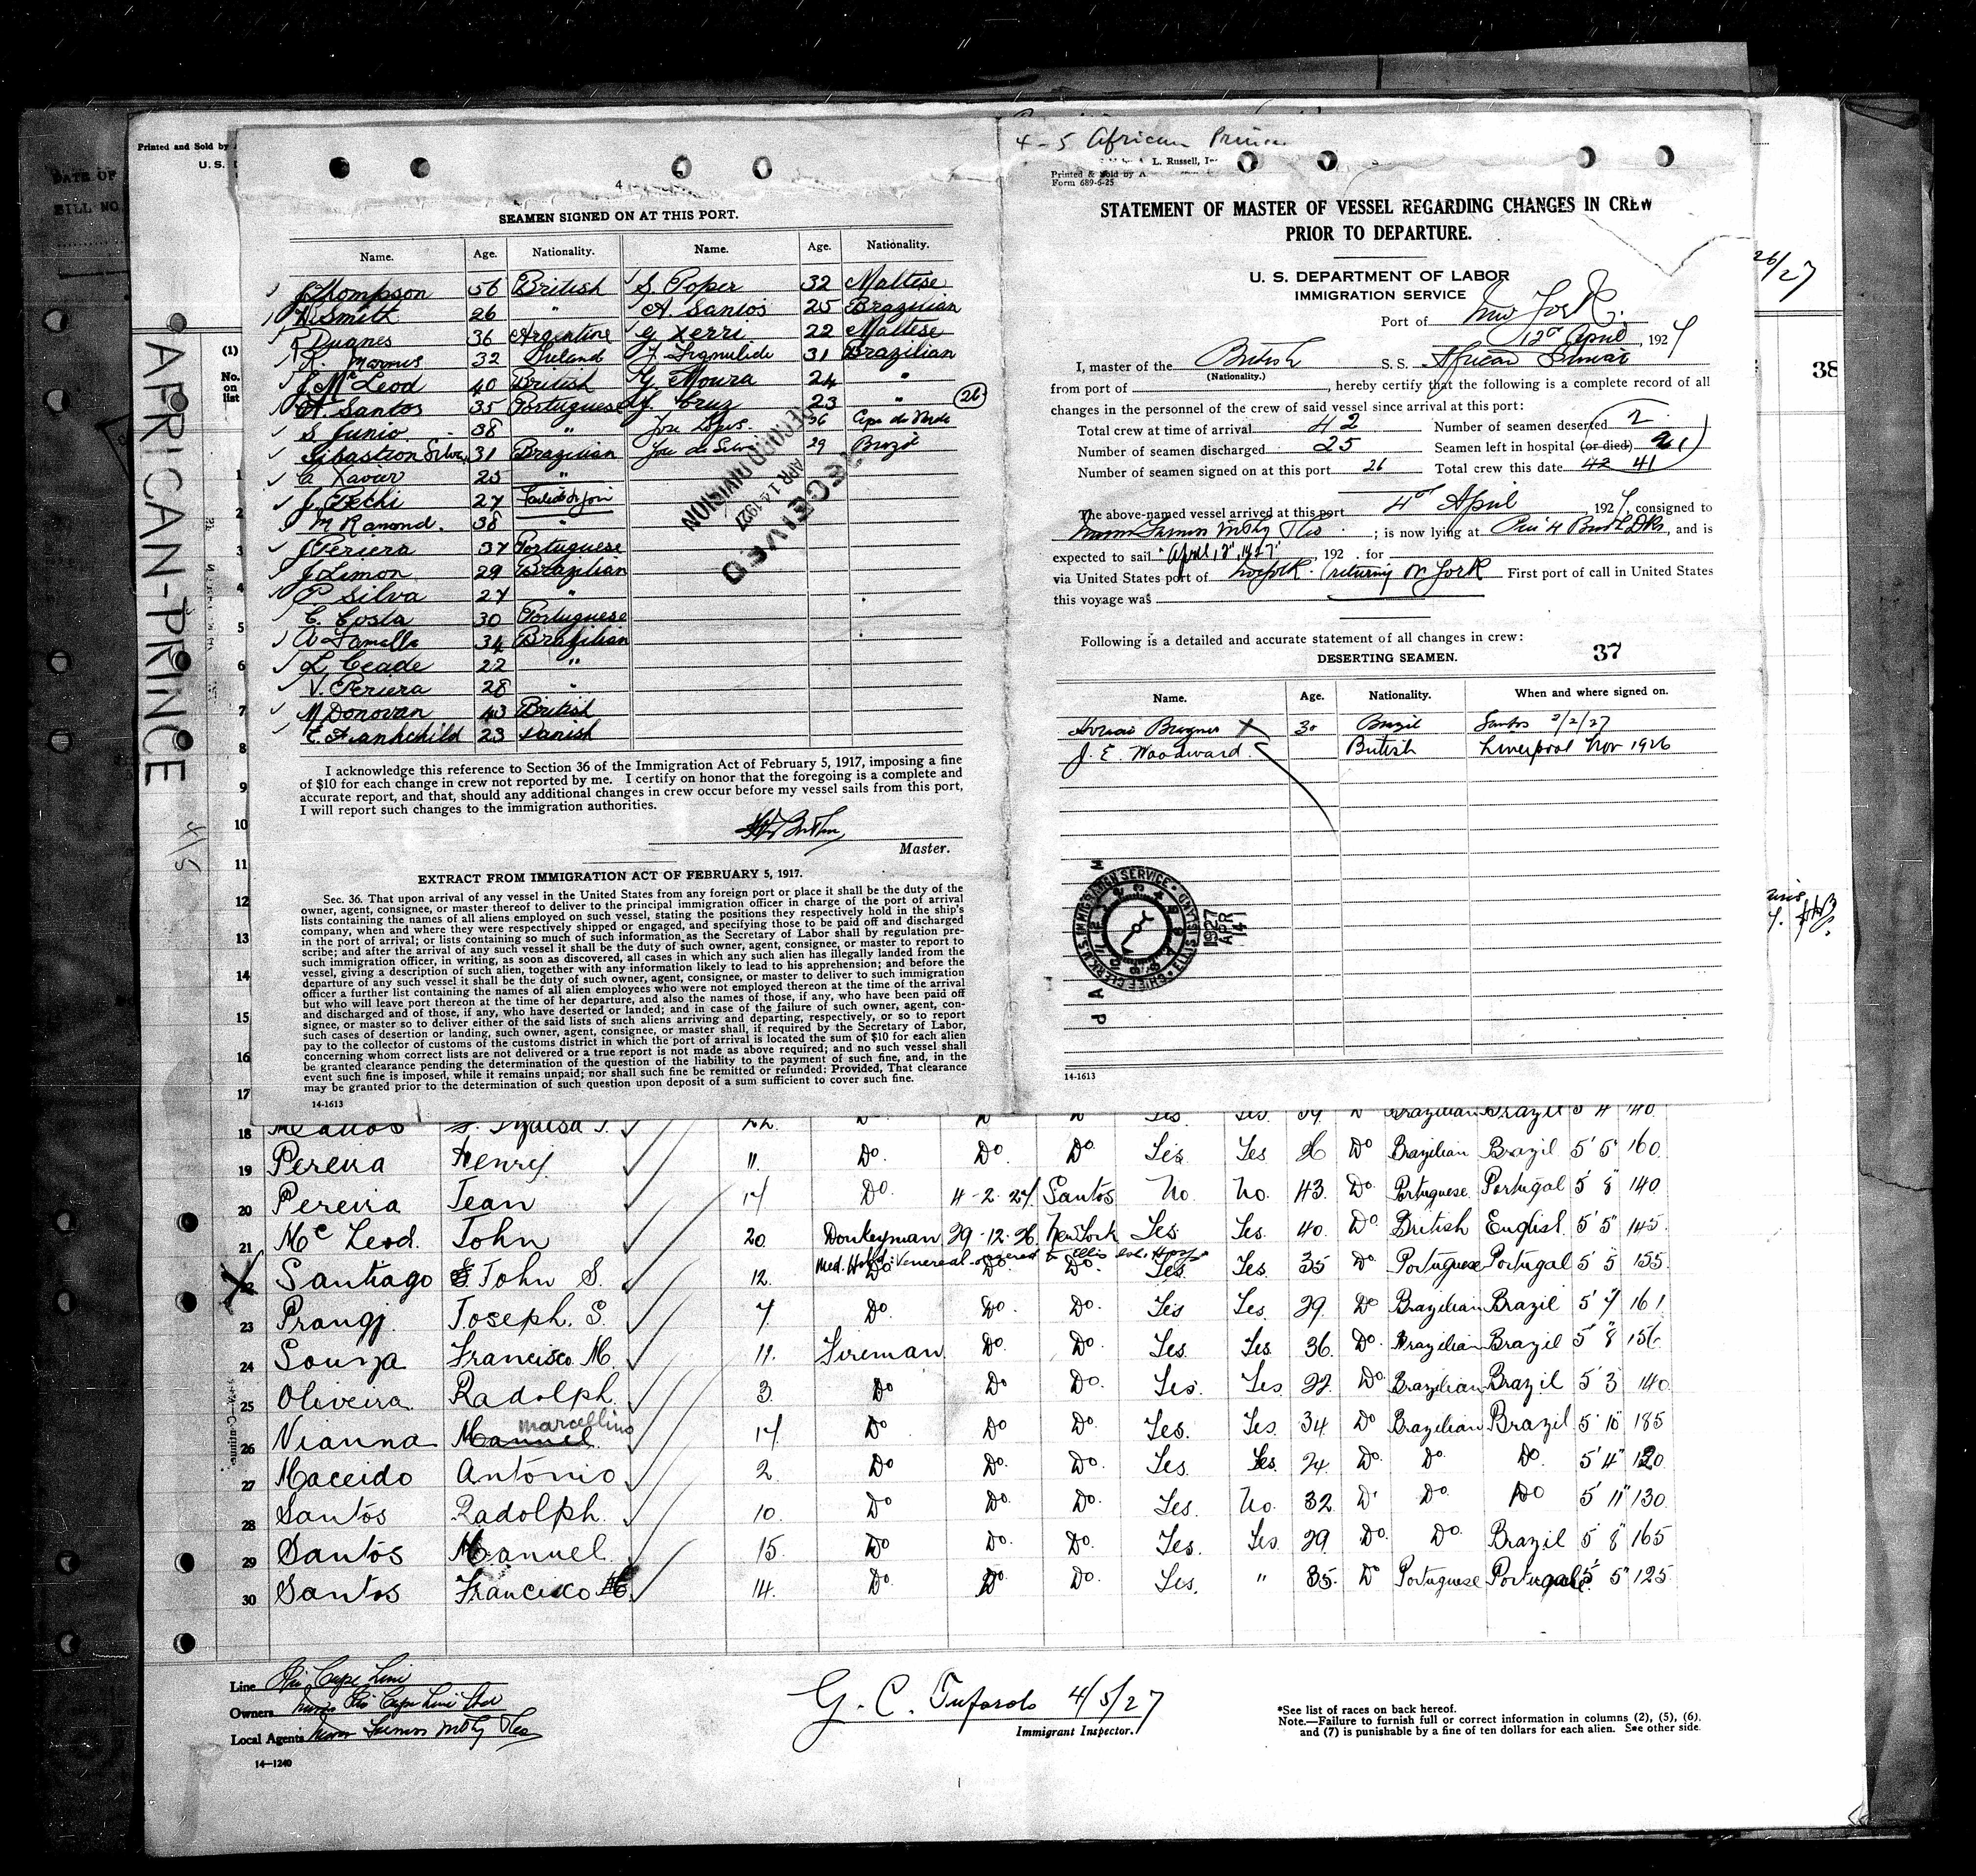 DATE OF
BILL NO.
Printed and Sold by
U. S.
AFRICAN-PRINCE
4/5
4
SEAMEN SIGNED ON AT THIS PORT.
Name. Age. Nationality. Name. Age. Nationality.
J Thompson 56 British S. Poper 32 Maltese
Smith 26 " A. Santos 25 Brazilian
Dugnes 36 Argentine G Xerri 22 Maltese
32 Ireland J. 31 Brazilian
J Mc Leod 40 British G Moura 24 "
A. Santos 35 Portuguese J. Cruz 23 " 26
S. Junio 38 " Jose 36 Cape de Verde
Sibastion Silva 31 Brazilian Jose da Silva 29 Brazil
C Xavier 25 "
J. Pechi 27
M Ramond. 38 "
J Periera 37 Portuguese
J. Limon 29 Brazilian
P Silva 27 "
C. Costa 30 Portuguese
A 34 Brazilian
L. Ceade 22 "
V. Periera 28 "
M Donovan 43 British
E. Frankchild 23 Danish
RECEIVED
APR 14 1927
RECORD DIVISION
I acknowledge this reference to Section 36 of the Immigration Act of February 5, 1917, imposing a fine
of $10 for each change in crew not reported by me. I certify on honor that the foregoing is a complete and
accurate report, and that, should any additional changes in crew occur before my vessel sails from this port,
I will report such changes to the immigration authorities.
Master.
EXTRACT FROM IMMIGRATION ACT OF FEBRUARY 5, 1917.
Sec. 36. That upon arrival of any vessel in the United States from any foreign port or place it shall be the duty of the
owner, agent, consignee, or master thereof to deliver to the principal immigration officer in charge of the port of arrival
lists containing the names of all aliens employed on such vessel, stating the positions they respectively hold in the ship's
company, when and where they were respectively shipped or engaged, and specifying those to be paid off and discharged
in the port of arrival; or lists containing so much of such information as the Secretary of Labor shall by regulation pre-
scribe; and after the arrival of any such vessel it shall be the duty of such owner, agent, consignee, or master to report to
such immigration officer, in writing, as soon as discovered, all cases in which any such alien has illegally landed from the
vessel, giving a description of such alien, together with any information likely to lead to his apprehension; and before the
departure of any such vessel it shall be the duty of such owner, agent, consignee, or master to deliver to such immigration
officer a further list containing the names of all alien employees who were not employed thereon at the time of the arrival
but who will leave port thereon at the time of her departure, and also the names of those, if any, who have been paid off
and discharged and of those, if any, who have deserted or landed; and in case of the failure of such owner, agent, con-
signee, or master so to deliver either of the said lists of such aliens arriving and departing, respectively, or so to report
such cases of desertion or landing, such owner, agent, consignee, or master shall, if required by the Secretary of Labor,
pay to the collector of customs of the customs district in which the port of arrival is located the sum of $10 for each alien
concerning whom correct lists are not delivered or a true report is not made as above required; and no such vessel shall
be granted clearance pending the determination of the question of the liability to the payment of such fine, and, in the
event such fine is imposed, while it remains unpaid; nor shall such fine be remitted or refunded: Provided, That clearance
may be granted prior to the determination of such question upon deposit of a sum sufficient to cover such fine.
14-1613
4-5 African Prince
L. Russell,
Printed & Sold by A
Form 689-6-25
STATEMENT OF MASTER OF VESSEL REGARDING CHANGES IN CREW
PRIOR TO DEPARTURE.
U. S. DEPARTMENT OF LABOR
IMMIGRATION SERVICE
Port of New York.
12th April, 1927
I, master of the British S. S. African Prince
(Nationality.)
from port of , hereby certify that the following is a complete record of all
changes in the personnel of the crew of said vessel since arrival at this port:
Total crew at time of arrival 42 Number of seamen deserted 2
Number of seamen discharged 25 Seamen left in hospital (or died)
Number of seamen signed on at this port 26 Total crew this date 42 41
The above-named vessel arrived at this port 4th April 1927, consigned to
; is now lying at Pier 4 , and is
expected to sail "April, 12", 1927" , 192 . for
via United States port of Norfolk. (returning N York First port of call in United States
this voyage was
Following is a detailed and accurate statement of all changes in crew:
DESERTING SEAMEN. 37
Name. Age. Nationality. When and where signed on.
X 30 Brazil Santos 2/2/27
J. E. Woodward British Liverpool Nov 1926
CHIEF CLERK, U.S. IMMIGRATION SERVICE · ELLIS ISLAND
1927
APR
14
14-1613
26/27
38
(1)
No.
on
list
1
2
3
4
5
6
7
8
9
10
11
12
13
14
15
16
17
18 22 Do Do Do Yes Yes. 39 Do Brazilian Brazil 5 4 140
19 Pereira Henry 11. Do. Do. Do. Yes. Yes 26 Do Brazilian Brazil 5' 5" 160
20 Pereira Jean 17 Do. 4-2-27. Santos No. No. 43. Do. Portuguese Portugal 5' 8" 140
21 Mc Leod. John 20 Donkeyman 29-12-26 New York Yes Yes. 40. Do. British English 5' 5" 145.
Med. Hold: Venereal
22 Santiago John S. 12. Do Do. Do. Yes. Yes. 35 Do. Portuguese Portugal 5' 5 155
23 Prangj. Joseph. S. 7 Do. Do. Do. Yes Yes. 29. Do Brazilian Brazil 5' 7" 161
24 Souza Francisco M. 11. Fireman. Do. Do. Yes. Yes. 36. Do. Brazilian Brazil 5' 8" 156
25 Oliveira Radolph. 3. Do Do Do. Yes. Yes. 22. Do. Brazilian Brazil 5' 3" 140
marcellino
26 Vianna Manuel. 17 Do Do Do. Yes. Yes. 34 Do Brazilian Brazil 5' 10" 185
27 Maceido Antonio 2. Do Do Do. Yes. Yes. 24. Do. Do. Do. 5' 4" 120
28 Santos Radolph. 10. Do Do. Do. Yes. No. 32. Do Do. Do 5' 11" 130.
29 Santos Manuel. 15. Do Do. Do. Yes. Yes. 29. Do. Do. Brazil 5' 8" 165
30 Santos Francisco 14. Do Do. Do. Yes. " 35. Do Portuguese Portugal 5' 5" 125
Line Rio Cape Line
Owners Rio Cape Line Ltd
Local Agents
14—1240
G. C. Tufarolo 4/5/27
Immigrant Inspector.
*See list of races on back hereof.
Note.—Failure to furnish full or correct information in columns (2), (5), (6).
and (7) is punishable by a fine of ten dollars for each alien. See other side.